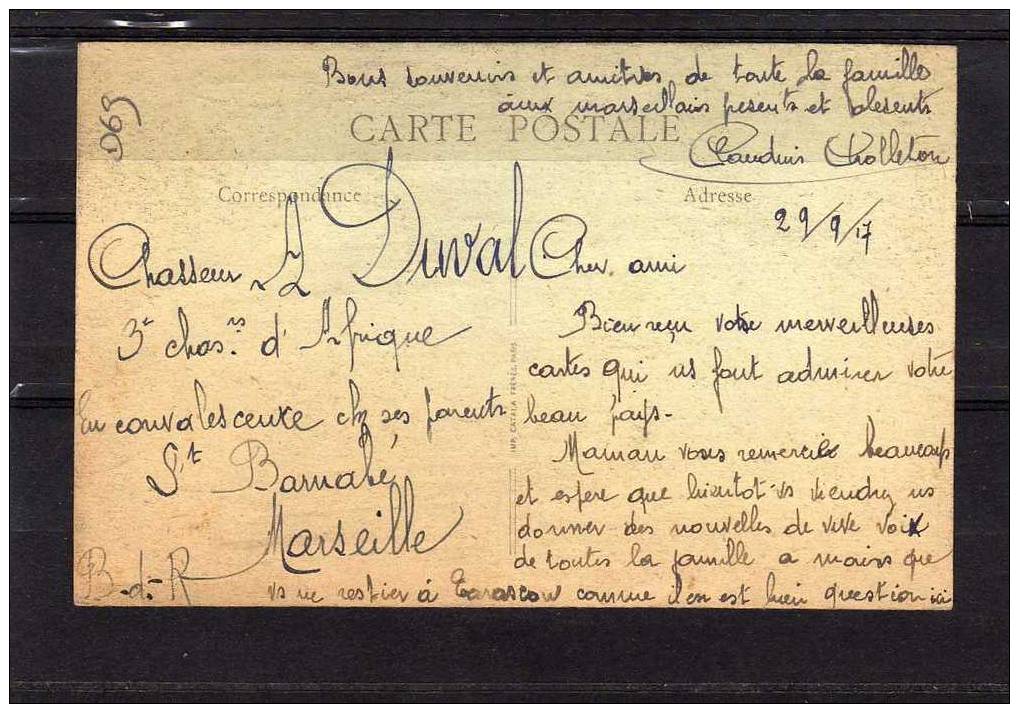 Bons souvenirs et amitiés de toute la famille
aux marseillais présents et absents
CARTE POSTALE
Claudius Cholleton
Correspondance
Adresse
29/9/17
Chasseur L Duval
3e chas.rs d'Afrique
En convalescence chz ses parents
St Barnabé
Marseille
B.-d.-R
Cher ami
Bien reçu votre merveilleuses
cartes qui ns font admirer votre
beau pays-
Maman vous remercie beaucoup
et espere que bientot vs viendrez ns
donner des nouvelles de vive voix
de toutes la famille a moins que
vs ne restiez à Tarascon comme il en est bien question ici
IMP. CATALA FRÈRES, PARIS